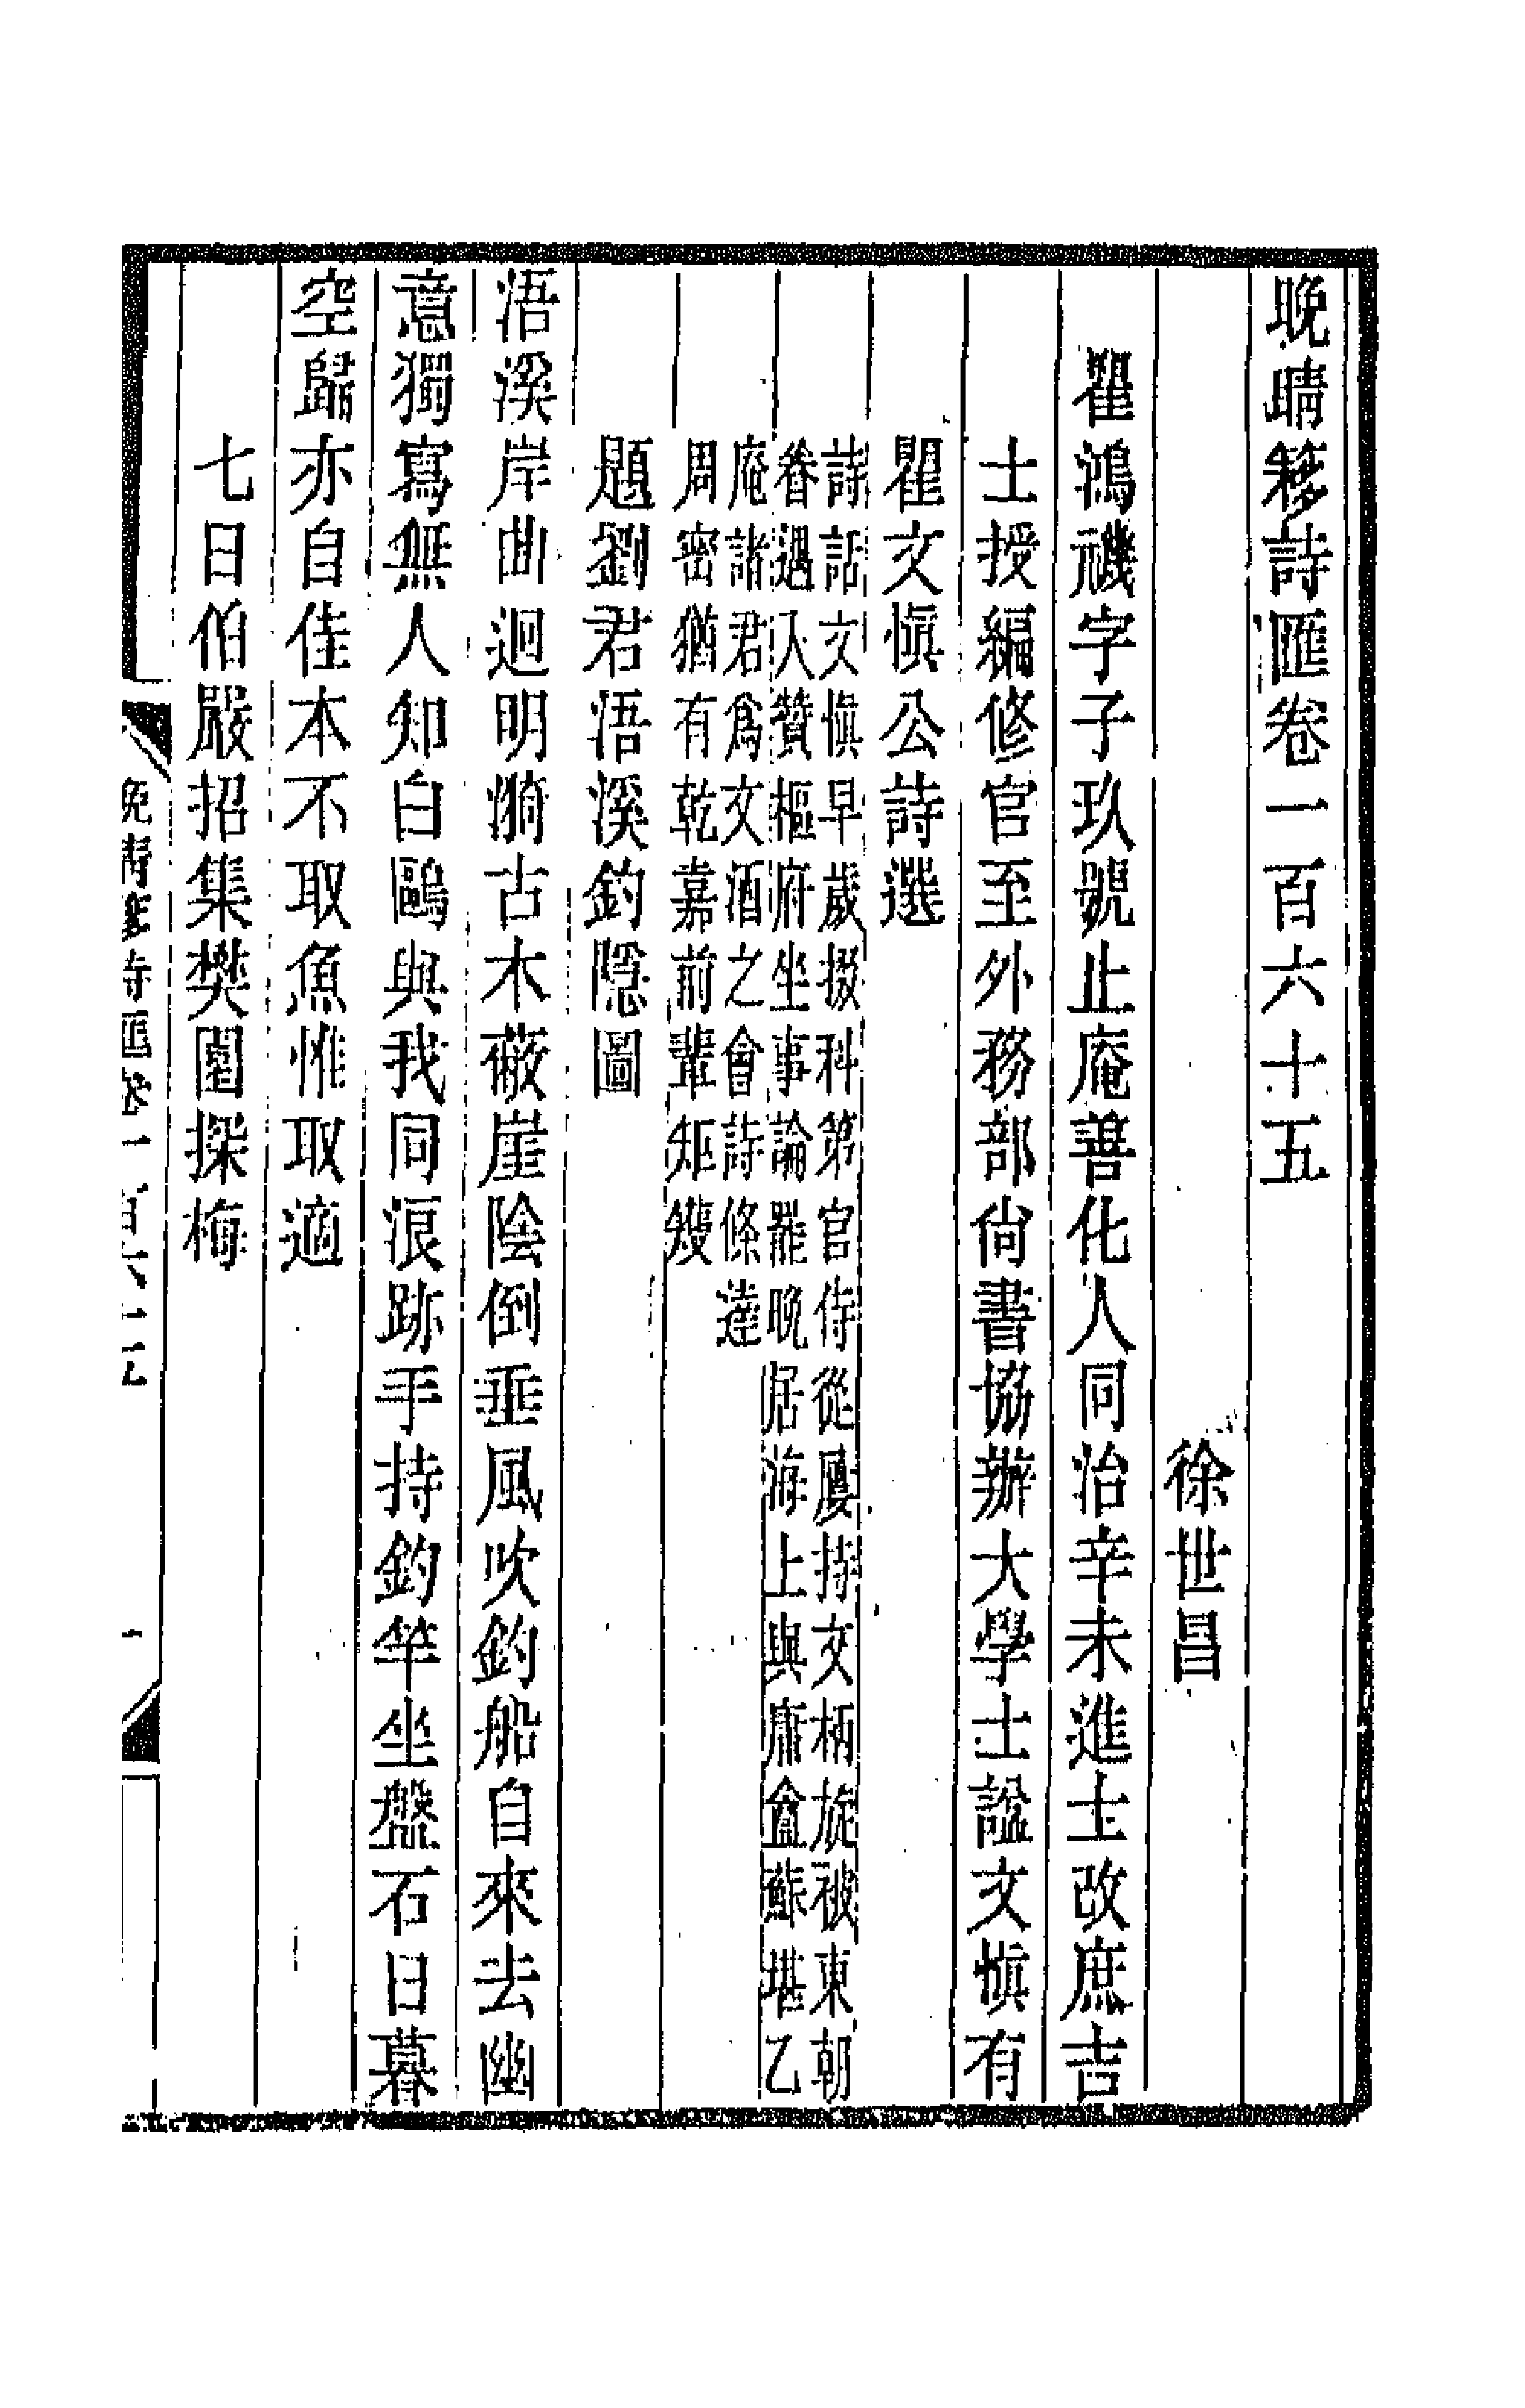 晚晴簃詩匯卷一百六十五
徐世昌
瞿鴻禨字子玖號止庵善化人同治辛未進士改庶吉
士授編修官至外務部尙書協辦大學士諡文愼有
瞿文愼公詩選
詩話文愼早歲掇科第官侍從屢持文柄旋被東朝
眷遇入贊樞府坐事論罷晚居海上與庸盦蘇堪乙
庵諸君爲文酒之會詩條達
周密猶有乾嘉前輩矩矱
題劉君浯溪釣隱圖
浯溪岸曲迴明漪古木蔽崖陰倒垂風吹釣船自來去幽
意獨寫無人知白鷗與我同浪跡手持釣竿坐盤石日暮
空歸亦自佳本不取魚惟取適
七日伯嚴招集樊園探梅
晚晴簃詩匯卷一百六十五
一